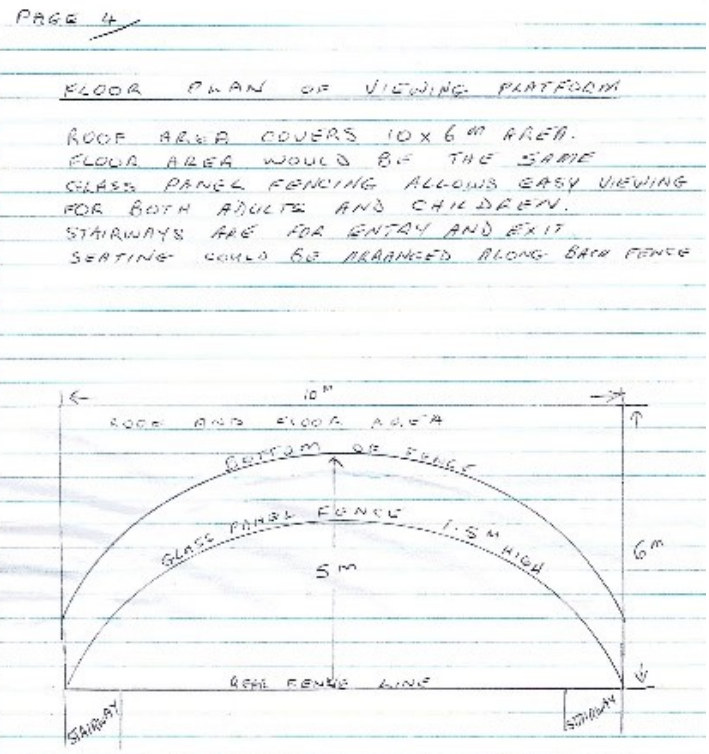 PAGE 4
FLOOR PLAN OF VIEWING PLATFORM
ROOF AREA COVERS 10 x 6 M AREA.
FLOOR AREA WOULD BE THE SAME
GLASS PANEL FENCING ALLOWS EASY VIEWING
FOR BOTH ADULTS AND CHILDREN.
STAIRWAYS ARE FOR ENTRY AND EXIT
SEATING COULD BE ARRANGED ALONG FENCE
10 M
ROOF AND FLOOR AREA
BOTTOM OF FENCE
GLASS PANEL FENCE 1.5 M HIGH
5 M
6 M
REAR FENCE LINE
STAIRWAY
STAIRWAY